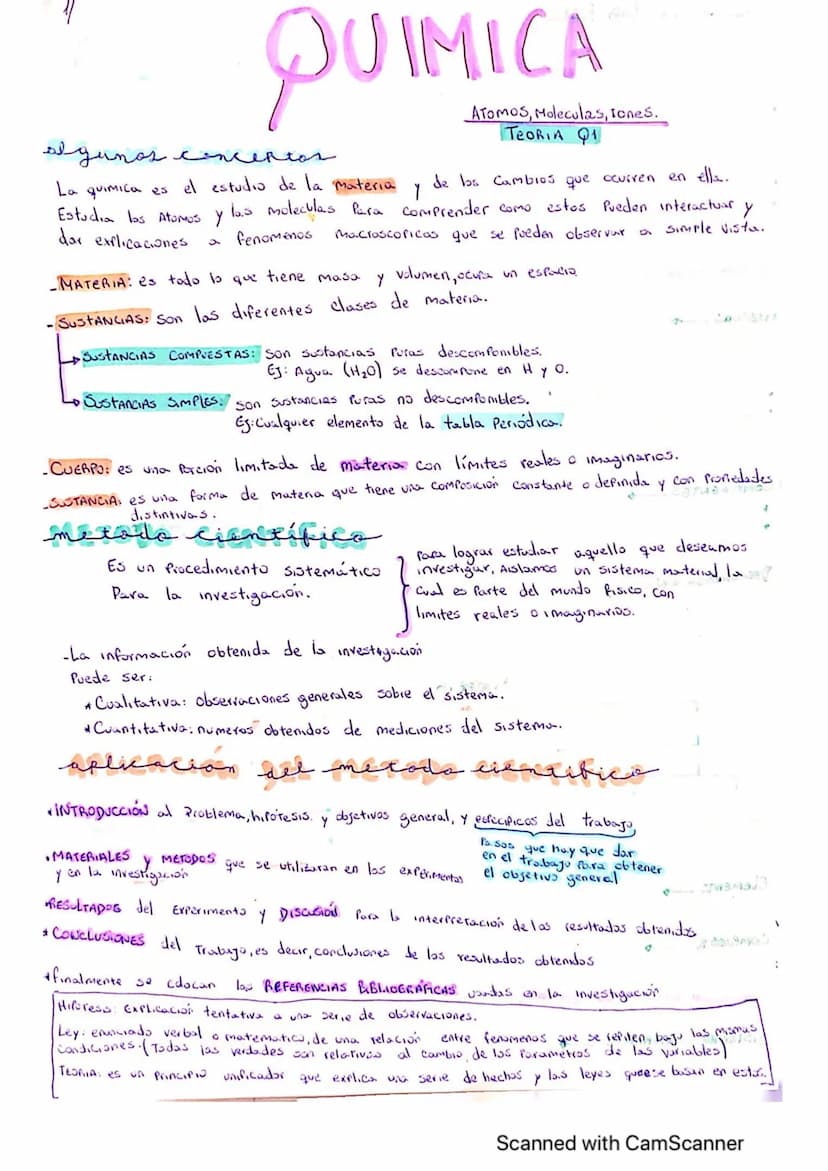 QUIMICA
Atomos, Moleculas, Iones.
TEORIA Q1
algunos conceptos
La quimica es el estudio de la Materia y de los Cambios que ocurren en ella.
Estudia los Atomos y las moleculas Para comprender como estos Pueden interactuar y
dar explicaciones a fenomenos macroscopicos que se pueden observar a simple vista.
-MATERIA: es todo lo que tiene masa y volumen, ocupa un espacio
-SUSTANCIAS: son las diferentes clases de materia.
SUSTANCIAS COMPUESTAS: Son sustancias Puras descomponibles.
Ej: Agua (H₂O) se descompone en H y O.
SUSTANCIAS SIMPLES: son sustancias Puras no descomponibles.
Ej: Cualquier elemento de la tabla Periódica.
-CUERPO: es una Porción limitada de materia con límites reales o imaginarios.
-SUSTANCIA: es una forma de materia que tiene una composición constante o definida y con Propiedades
distintivas.
metodo científico
Es un Procedimiento sistemático
Para la investigación.
Para lograr estudiar aquello que deseamos
investigar, Aislamos un sistema material, la
cual es Parte del mundo fisico, con
limites reales o imaginarios.
-La información obtenida de la investigación
Puede ser:
*Cualitativa: observaciones generales sobre el sistema.
*Cuantitativa: numeros obtenidos de mediciones del sistema.
aplicación del metodo cientifico
•INTRODUCCIÓN al Problema, hipótesis y objetivos general, y especificos del trabajo
Pasos que hay que dar
en el trabajo Para obtener
el objetivo general
•MATERIALES y METODOS que se utilizaran en los experimentos
y en la investigación
•RESULTADOS del Experimento y DISCUSIÓN Para la interpretación de los resultados obtenidos
*CONCLUSIONES del Trabajo, es decir, conclusiones de los resultados obtenidos
*finalmente se colocan las REFERENCIAS BIBLIOGRÁFICAS usadas en la investigación
Hipótesis: Explicación tentativa a una serie de observaciones.
Ley: enunciado verbal o matematico, de una relación entre fenomenos que se repiten, bajo las mismas
condiciones. (Todas las verdades son relativas al cambio de los Parametros de las variables)
TEORIA: es un Principio unificador que explica una serie de hechos y las leyes que se basan en estos.
Scanned with CamScanner